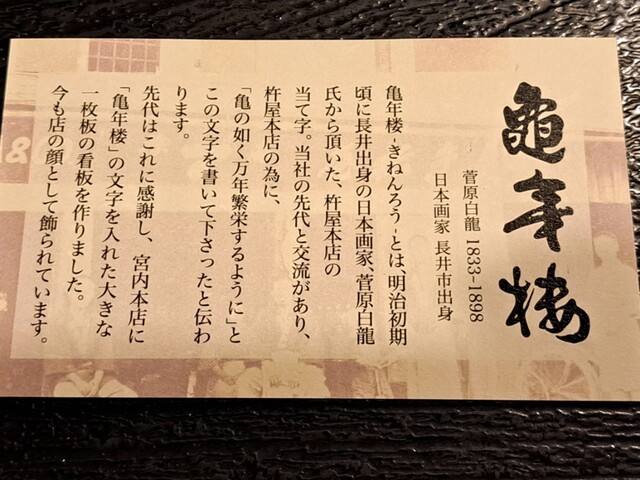 龜年楼
菅原白龍 1833-1898
日本画家 長井市出身
亀年楼 -きねんろう-とは、明治初期
頃に長井出身の日本画家、菅原白龍
氏から頂いた、杵屋本店の
当て字。当社の先代と交流があり、
杵屋本店の為に、
「亀の如く万年繁栄するように」と
この文字を書いて下さったと伝わ
ります。
先代はこれに感謝し、宮内本店に
「亀年楼」の文字を入れた大きな
一枚板の看板を作りました。
今も店の顔として飾られています。